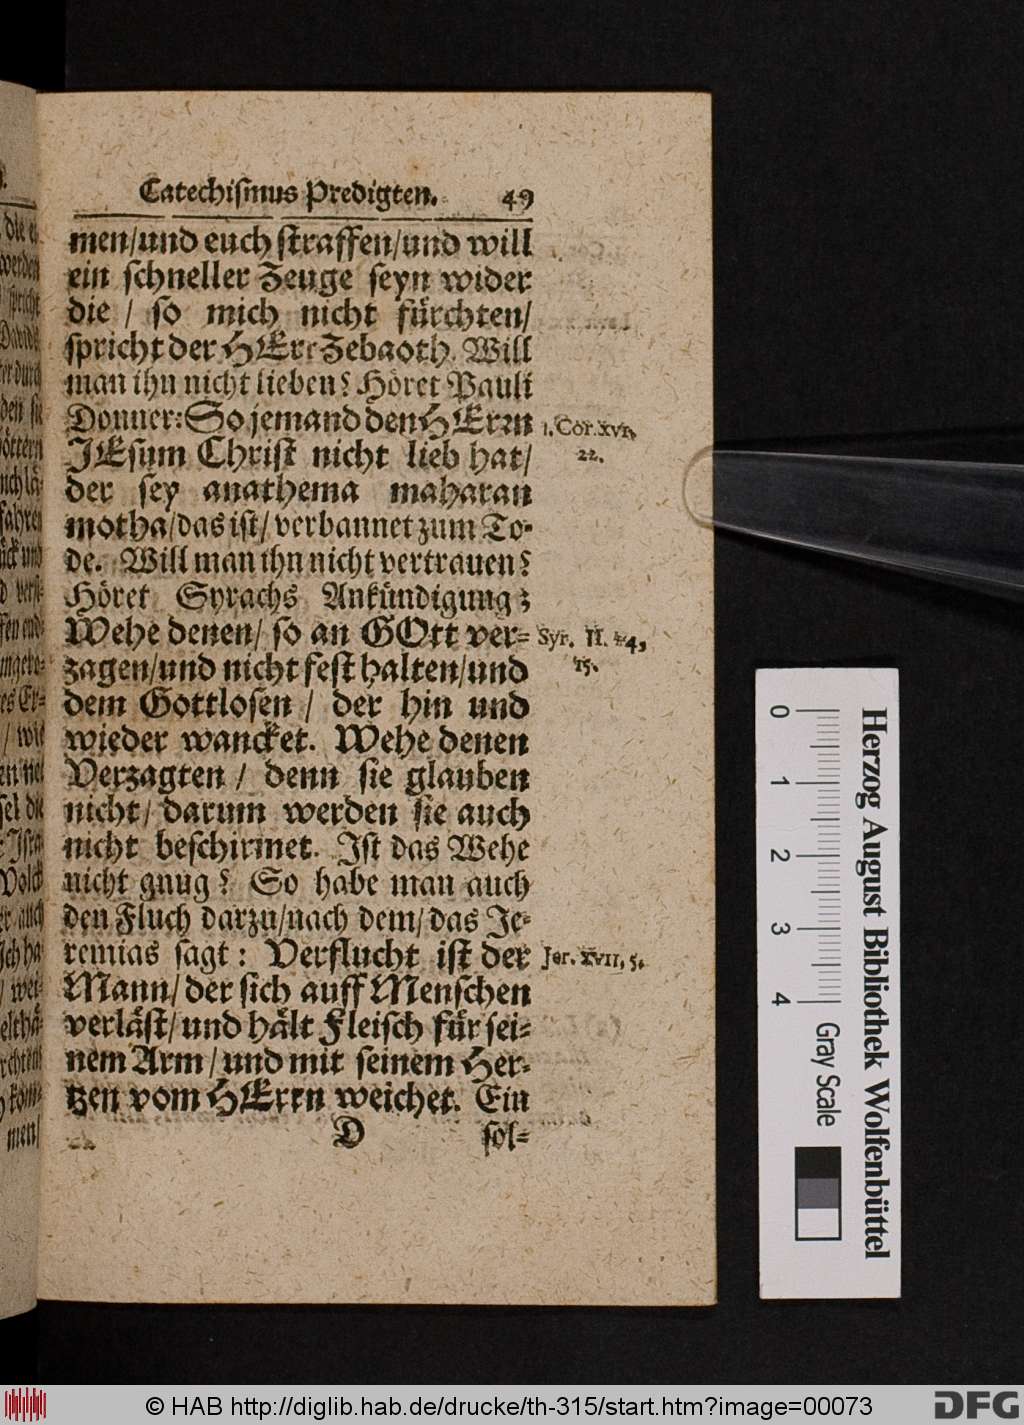 Catechismus Predigten. 49
men/und euch straffen/und will
ein schneller Zeuge seyn wider
die / so mich nicht fürchten/
spricht der HErr Zebaoth. Will
man ihn nicht lieben? Höret Pauli
Donner: So jemand den HErrn
JEsum Christ nicht lieb hat/
der sey anathema maharan
motha/das ist/verbannet zum To-
de. Will man ihn nicht vertrauen?
Höret Syrachs Ankündigung:
Wehe denen/ so an GOtt ver-
zagen/und nicht fest halten/und
dem Gottlosen / der hin und
wieder wancket. Wehe denen
Verzagten / denn sie glauben
nicht/ darum werden sie auch
nicht beschirmet. Ist das Wehe
nicht gnug? So habe man auch
den Fluch darzu/nach dem/das Je-
remias sagt: Verflucht ist der
Mann/der sich auff Menschen
verläst/und hält Fleisch für sei-
nem Arm/und mit seinem Her-
tzen vom HErrn weichet. Ein
D sol-
1. Cor. XVI,
22.
Syr. II. 14,
15.
Jer. XVII, 5.
0 1 2 3 4
Gray Scale
Herzog August Bibliothek Wolfenbüttel
© HAB http://diglib.hab.de/drucke/th-315/start.htm?image=00073
DFG